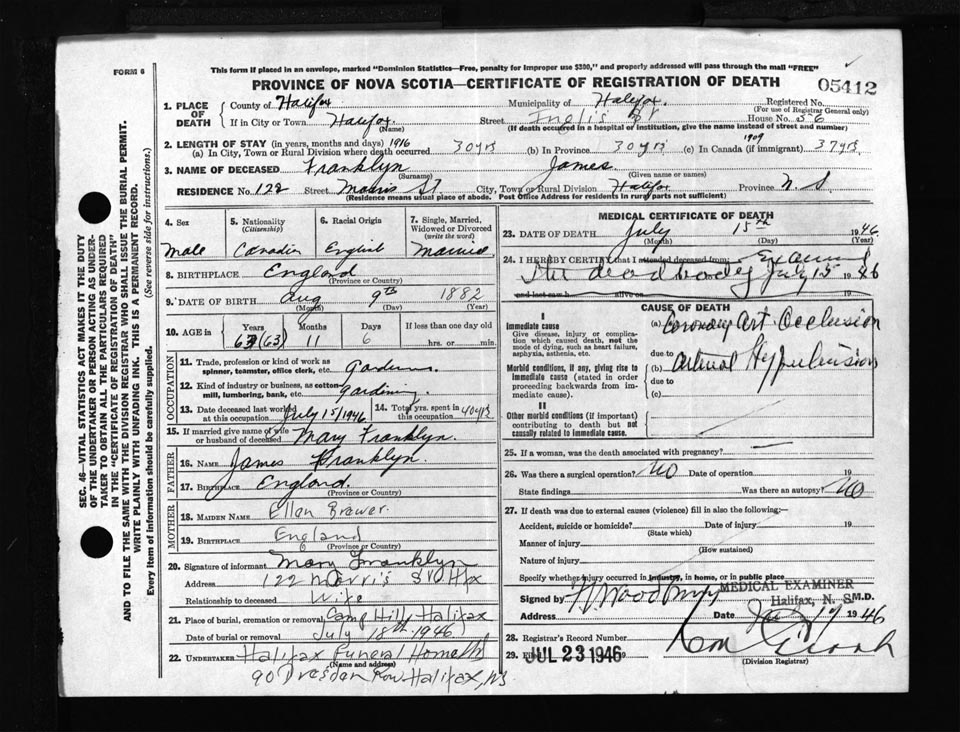 FORM 6
This form if placed in an envelope, marked "Dominion Statistics—Free, penalty for improper use $300," and properly addressed will pass through the mail "FREE"
PROVINCE OF NOVA SCOTIA—CERTIFICATE OF REGISTRATION OF DEATH
05412
1. PLACE OF DEATH
County of Halifax
Municipality of Halifax.
Registered No.
(For use of Registrar General only)
If in City or Town Halifax Street Inglis St House No. 56
(Name) (If death occurred in a hospital or institution, give the name instead of street and number)
2. LENGTH OF STAY (in years, months and days) 1916 1909
(a) In City, Town or Rural Division where death occurred 30 yrs (b) In Province 30 yrs (c) In Canada (if immigrant) 37 yrs
3. NAME OF DECEASED Franklyn James
(Surname) (Given name or names)
RESIDENCE No. 122 Street Morris St. City, Town or Rural Division Halifax Province N.S.
(Residence means usual place of abode. Post Office Address for residents in rural parts not sufficient)
SEC. 46—VITAL STATISTICS ACT MAKES IT THE DUTY
OF THE UNDERTAKER OR PERSON ACTING AS UNDER-
TAKER TO OBTAIN ALL THE PARTICULARS REQUIRED
IN THE "CERTIFICATE OF REGISTRATION OF DEATH"
AND TO FILE THE SAME WITH THE DIVISION REGISTRAR WHO SHALL ISSUE THE BURIAL PERMIT.
WRITE PLAINLY WITH UNFADING INK. THIS IS A PERMANENT RECORD.
Every item of information should be carefully supplied. (See reverse side for instructions.)
4. Sex
Male
5. Nationality
(Citizenship)
Canadian
6. Racial Origin
English
7. Single, Married, Widowed or Divorced
(write the word)
Married
8. BIRTHPLACE England
(Province or Country)
9. DATE OF BIRTH Aug 9th 1882
(Month) (Day) (Year)
10. AGE in Years Months Days If less than one day old
63 (63) 11 6 hrs. or min.
OCCUPATION
11. Trade, profession or kind of work as
spinner, teamster, office clerk, etc. Gardener.
12. Kind of industry or business, as cotton-
mill, lumbering, bank, etc. Gardening
13. Date deceased last worked at this occupation July 15/1946 14. Total yrs. spent in this occupation 40 yrs
15. If married give name of wife
or husband of deceased Mary Franklyn.
FATHER
16. NAME James Franklyn.
17. BIRTHPLACE England.
(Province or Country)
MOTHER
18. MAIDEN NAME Ellen Brewer.
19. BIRTHPLACE England
(Province or Country)
20. Signature of informant Mary Franklyn
Address 122 Morris St Hfx
Relationship to deceased Wife
21. Place of burial, cremation or removal Camp Hill, Halifax
Date of burial or removal July 18th 1946
22. UNDERTAKER Halifax Funeral Home
(Name and address)
90 Dresden Row Halifax, NS
MEDICAL CERTIFICATE OF DEATH
23. DATE OF DEATH July 15th 1946.
(Month) (Day) (Year)
24. I HEREBY CERTIFY that I attended deceased from
the dead body July 15 1946
and last saw h alive on 19
CAUSE OF DEATH
I
Immediate cause
Give disease, injury or complication which caused death, not the mode of dying, such as heart failure, asphyxia, asthenia, etc.
(a) Coronary Art Occlusion
due to
Morbid conditions, if any, giving rise to immediate cause (stated in order proceeding backwards from immediate cause).
(b) Arterial Hypertension
due to
(c)
II
Other morbid conditions (if important) contributing to death but not causally related to immediate cause.
25. If a woman, was the death associated with pregnancy?
26. Was there a surgical operation? No Date of operation 19
State findings Was there an autopsy? No
27. If death was due to external causes (violence) fill in also the following:—
Accident, suicide or homicide? Date of injury 19
(State which)
Manner of injury
(How sustained)
Nature of injury
Specify whether injury occurred in industry, in home, or in public place
MEDICAL EXAMINER
Halifax, N. S.
Signed by M.D.
Address Date 1946
28. Registrar's Record Number
29. Filed JUL 23 1946
(Division Registrar)